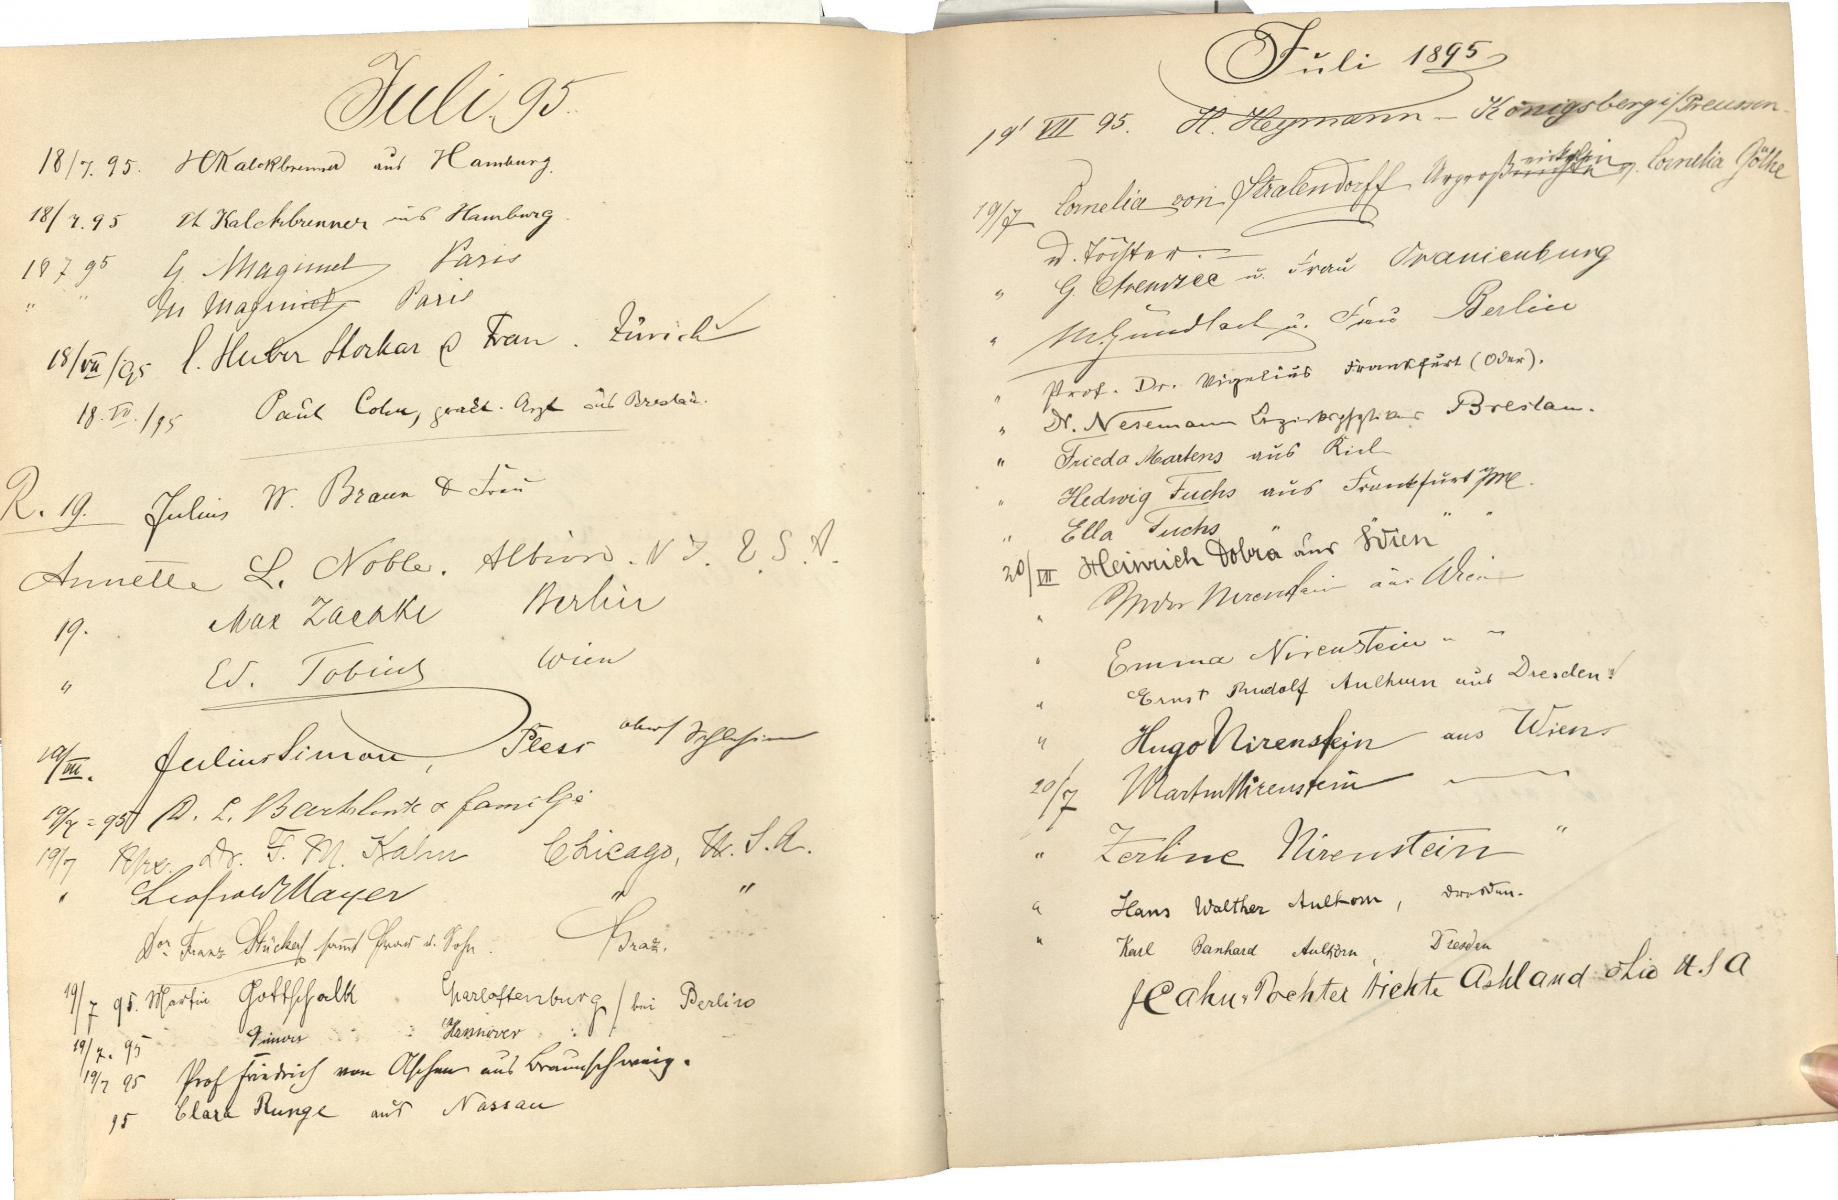 Juli 95.
18/7. 95. H Kalckbrenner aus Hamburg.
18/7. 95 Kalckbrenner aus Hamburg.
18 7 95 G. Magimel Paris
" " M Magimel Paris
18/VII/95 C. Huber Storkar & Frau. Zürich
18. VII./95 Paul Cohn, pract. Arzt aus Breslau.
R. 19. Julius W. Braun & Frau
Annette L. Noble. Albion. N Y. U. S. A.
19. Max Zachke Berlin
" Ed. Tobias Wien
19/VII. Julius Simon, Pless Ober/Schlesien
19/7 = 95 D. L. & familje
19/7 Dr. F. M. Kahn Chicago, U. S. A.
" Leopold Mayer " "
Dor Franz samt Frau u. Sohn. Graz.
19/7 95. Martin Gottschalk Charlottenburg / bei Berlin
19/7. 95 Hannover
19/7 95 Prof Friedrich von aus Braunschweig.
95 Clara Runge aus Nassau
Juli 1895
19/ VII 95. H. Heymann - Königsberg i/Preussen
19/7 Cornelia von Stralendorff Urgroßnichte v. Cornelia Göthe
u. Töchter.
" G. u. Frau Oranienburg
" M. Gundlach u. Frau Berlin
" Prof. Dr. Vigelius Frankfurt (Oder).
" Dr. Nesemann Bezirksphysikus Breslau.
" Frieda Martens aus Kiel
" Hedwig Fuchs aus Frankfurt /M.
" Ella Fuchs " " "
20/VII Heinrich Dobra aus Wien
" Nirenstein aus Wien
" Emma Nirenstein " "
" Ernst Rudolf Aulhorn aus Dresden.
" Hugo Nirenstein aus Wien
20/7 Martin Nirenstein
" Zerline Nirenstein "
" Hans Walther Aulhorn, Dresden.
" Karl Bernhard Aulhorn, Dresden
J Cahn, Tochter Nichte Ashland Ohio U. S A